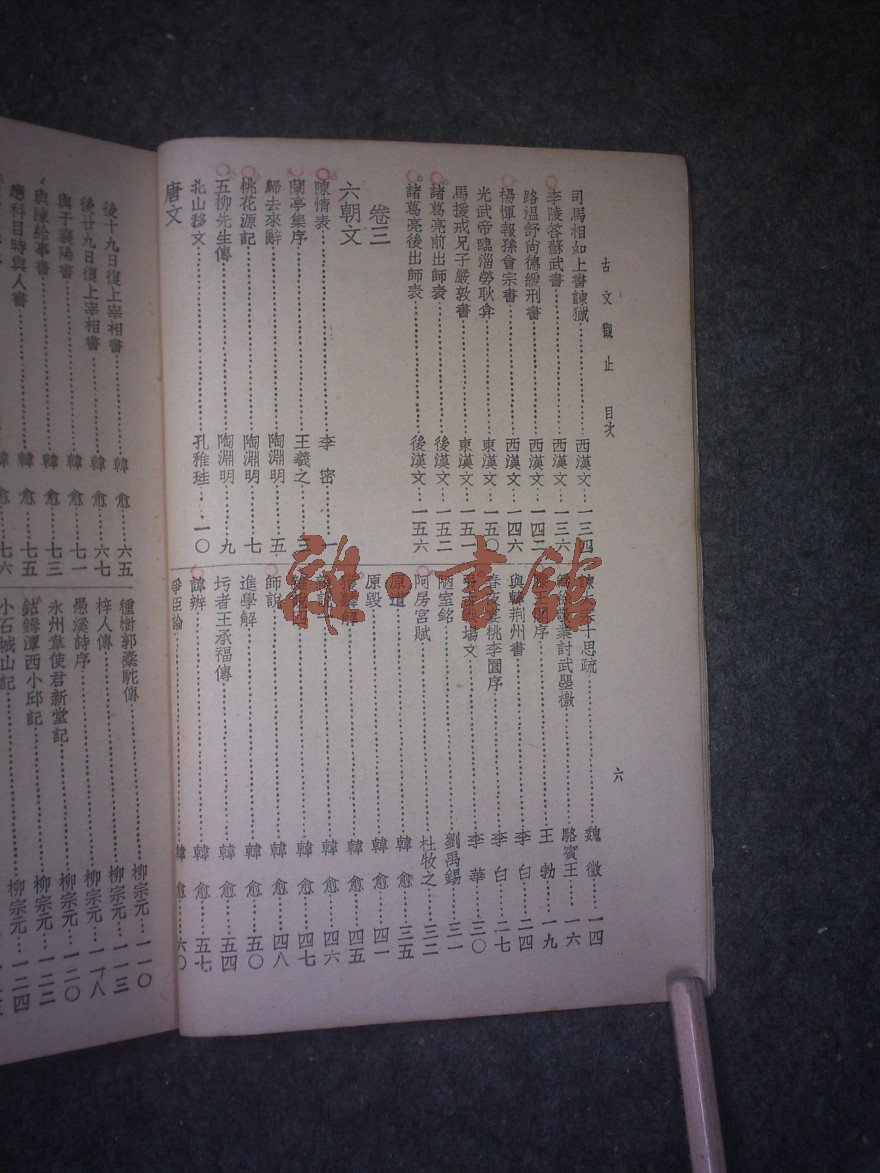 古文觀止 目次
六
司馬相如上書諫獵 西漢文 一三四
李陵答蘇武書 西漢文 一三六
路溫舒尚德緩刑書 西漢文 一四二
楊惲報孫會宗書 西漢文 一四六
光武帝臨淄勞耿弇 東漢文 一五〇
馬援戒兄子嚴敦書 東漢文 一五一
諸葛亮前出師表 後漢文 一五二
諸葛亮後出師表 後漢文 一五六
卷三
六朝文
陳情表 李密 一
蘭亭集序 王羲之 三
歸去來辭 陶淵明 五
桃花源記 陶淵明 七
五柳先生傳 陶淵明 九
北山移文 孔稚珪 一〇
唐文
十思疏 魏徵 一四
討武曌檄 駱賓王 一六
序 王勃 一九
與韓荆州書 李白 二四
春夜宴桃李園序 李白 二七
場文 李華 三〇
陋室銘 劉禹錫 三一
阿房宮賦 杜牧之 三二
原道 韓愈 三五
原毀 韓愈 四一
韓愈 四五
韓愈 四六
韓愈 四七
師說 韓愈 四八
進學解 韓愈 五〇
圬者王承福傳 韓愈 五四
諱辨 韓愈 五七
爭臣論 韓愈 六〇
後十九日復上宰相書 韓愈 六五
後廿九日復上宰相書 韓愈 六七
與于襄陽書 韓愈 七一
與陳給事書 韓愈 七三
應科目時與人書 韓愈 七五
韓愈 七六
種樹郭橐駝傳 柳宗元 一一〇
梓人傳 柳宗元 一一三
愚溪詩序 柳宗元 一一八
永州韋使君新堂記 柳宗元 一二〇
鈷鉧潭西小邱記 柳宗元 一二二
小石城山記 柳宗元 一二四
雜·書館